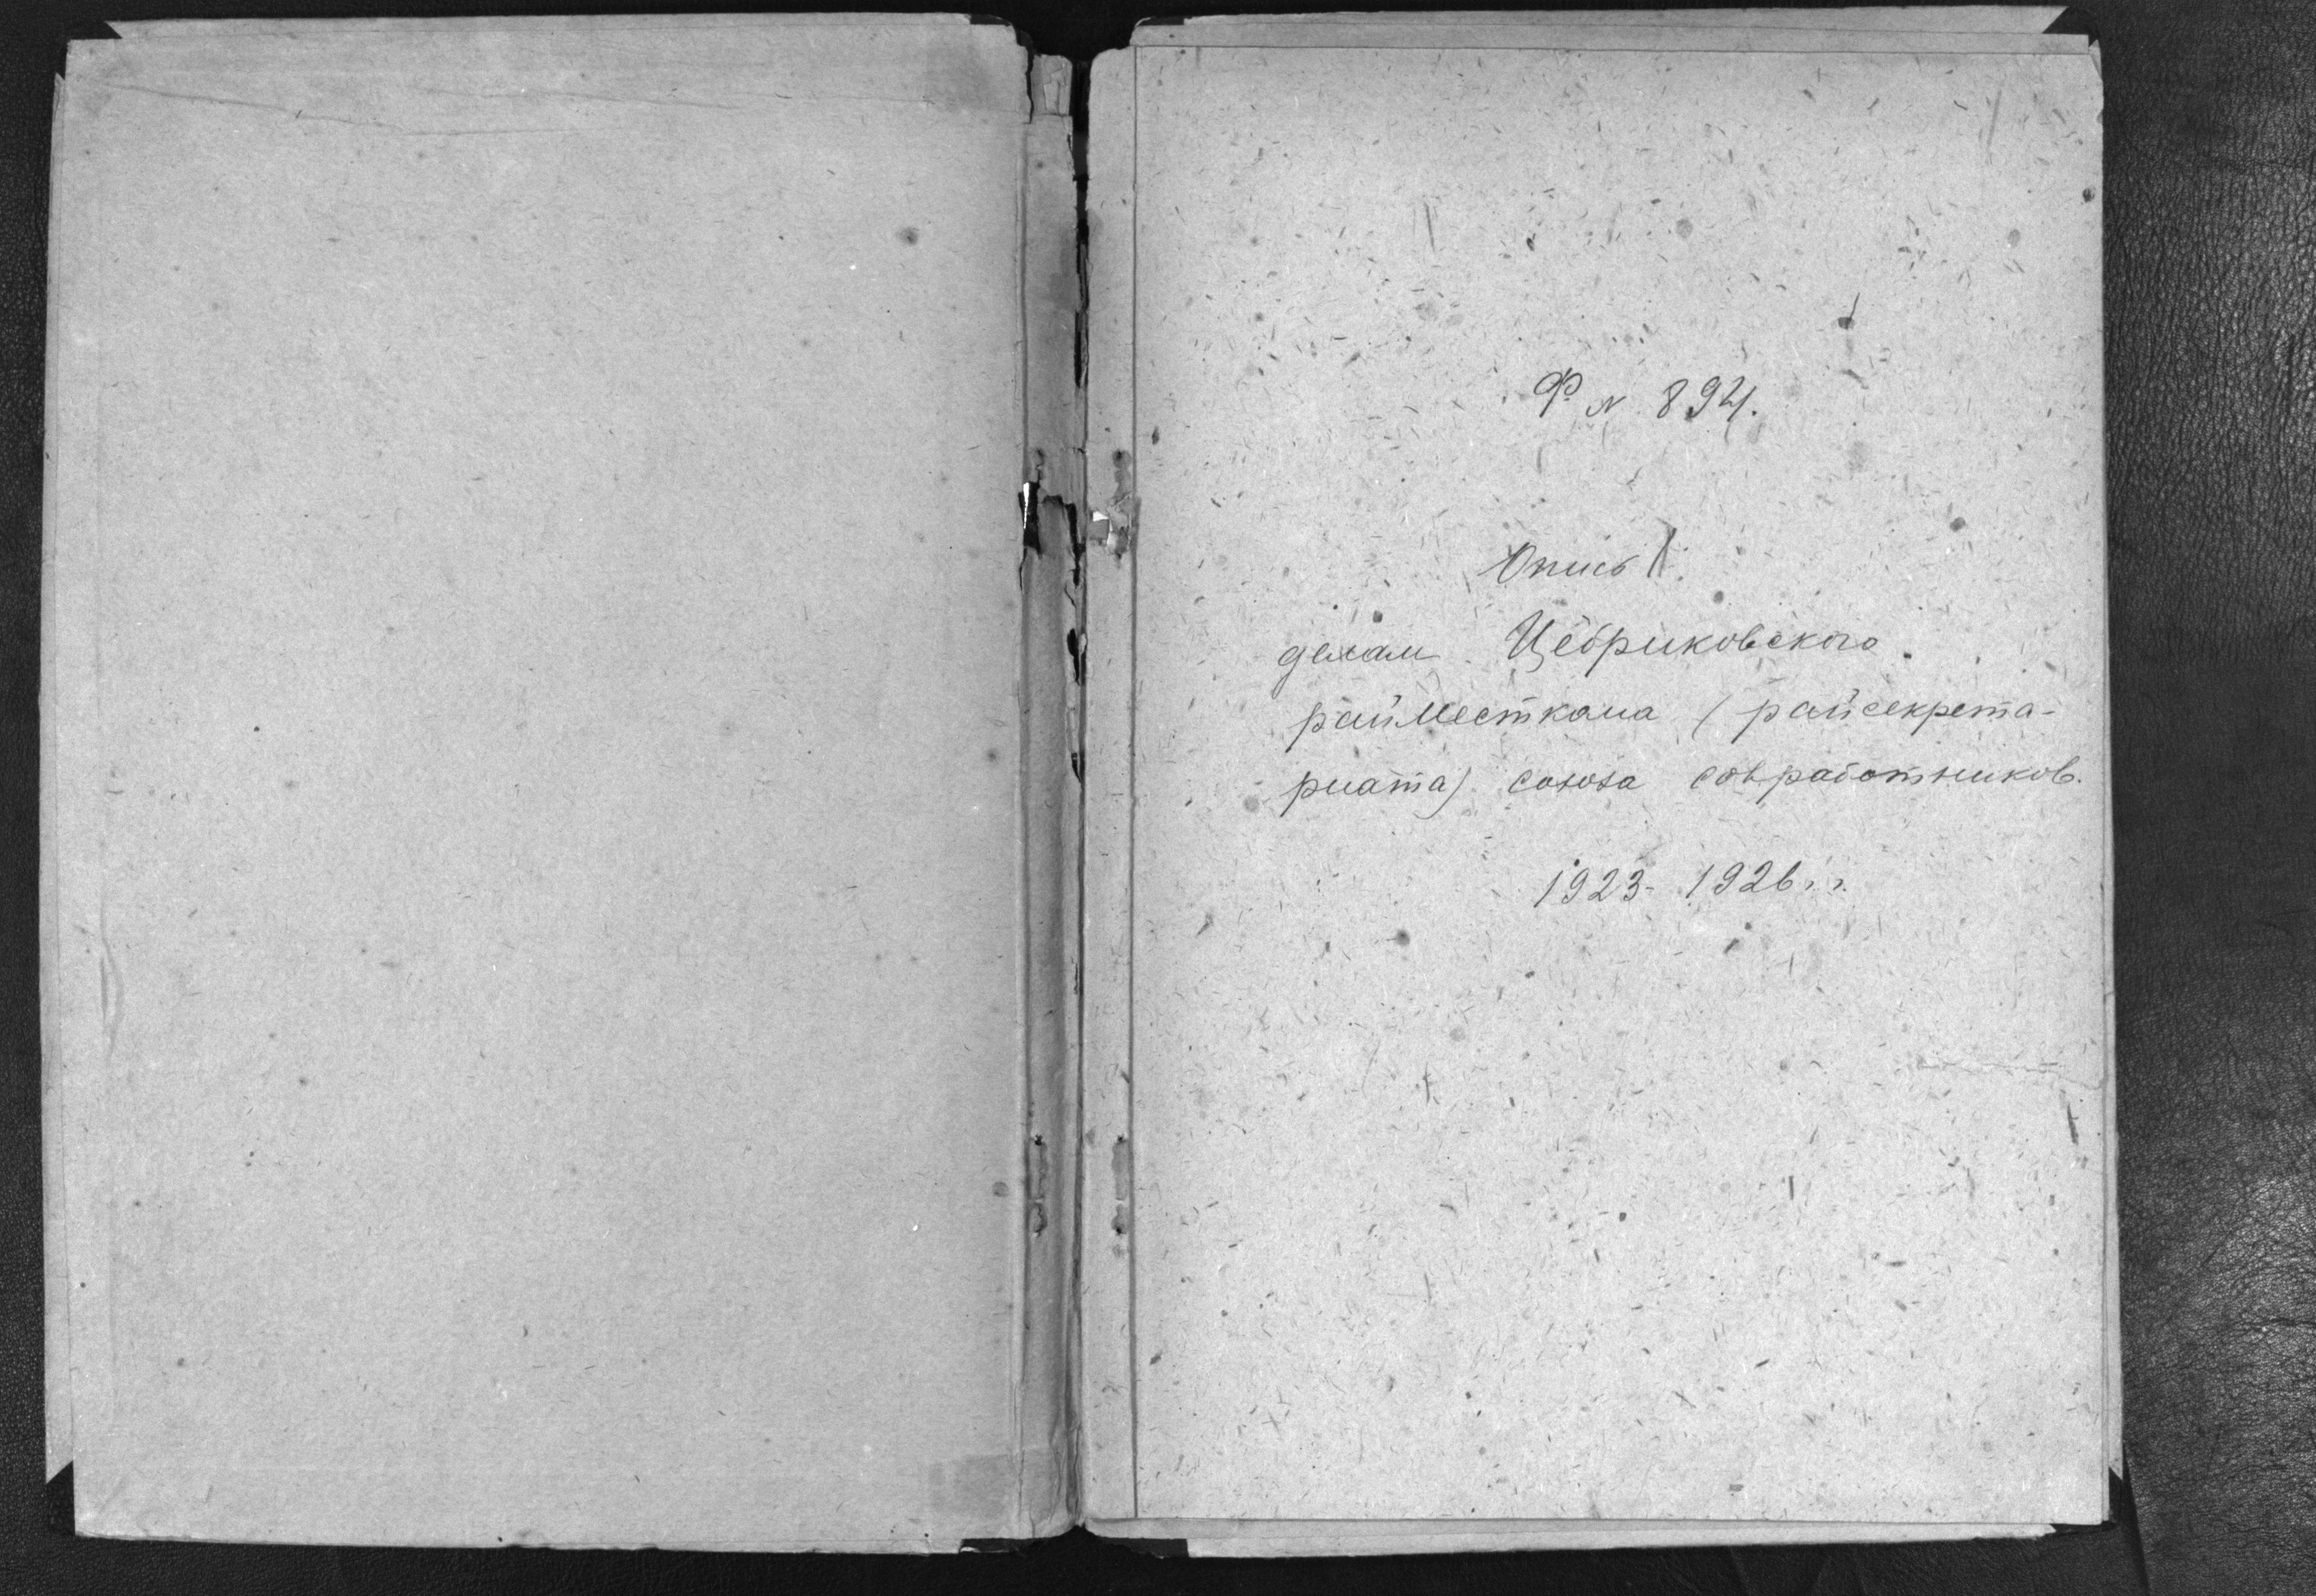 Ф. N 894.
Опись 1
делам Цебриковского
райместкома (райсекрета-
риата) союза совработников.
1923-1926 г.г.